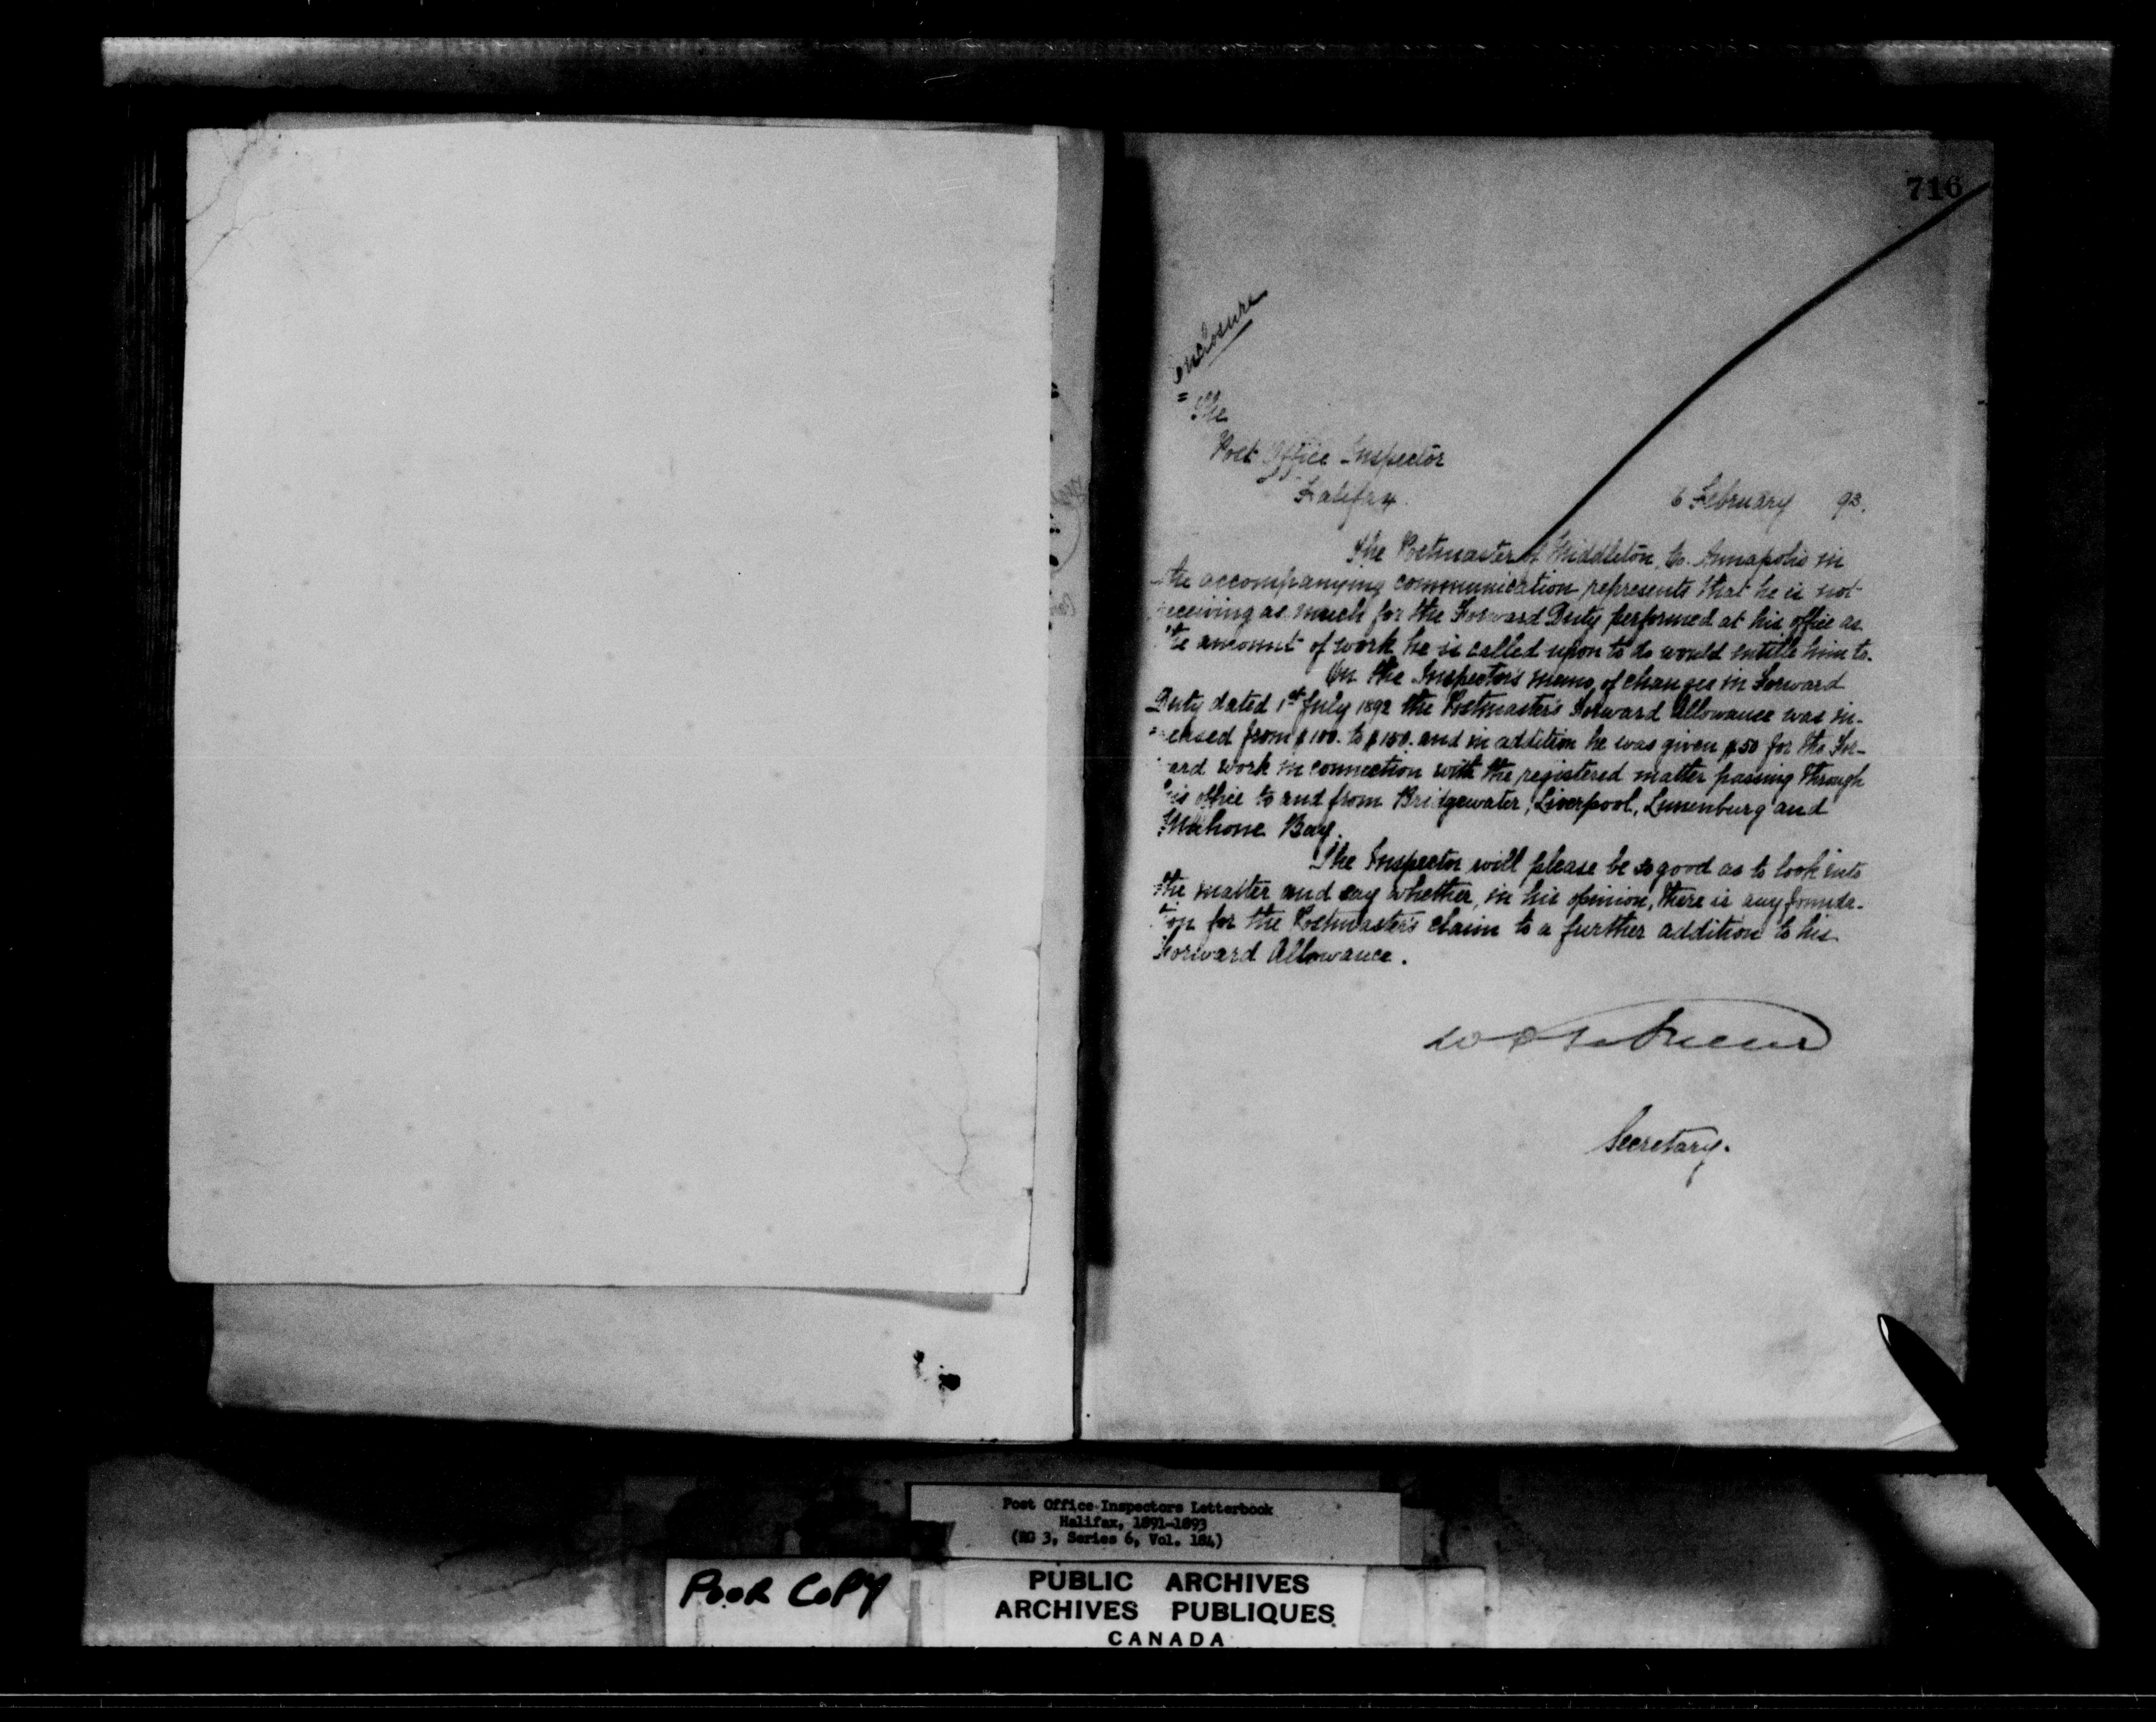 716
enclosure
The
Post Office Inspector
Halifax.
6 February 93.
The Postmaster of Middleton, Co. Annapolis in
the accompanying communication represents that he is not
receiving as much for the Forward Duty performed at his office as
the amount of work he is called upon to do would entitle him to.
On the Inspector's memo, of changes in Forward
Duty dated 1st July 1892 the Postmaster's Forward Allowance was in-
creased from $100. to $150. and in addition he was given $50 for the For-
ward work in connection with the registered matter passing through
his office to and from Bridgewater, Liverpool, Lunenburg and
Mahone Bay.
The Inspector will please be so good as to look into
the matter and say whether, in his opinion, there is any founda-
tion for the Postmaster's claim to a further addition to his
Forward Allowance.
Secretary.
Post Office Inspectors Letterbook
Halifax, 1891-1893
(RG 3, Series 6, Vol. 184)
POOR COPY
PUBLIC ARCHIVES
ARCHIVES PUBLIQUES
CANADA